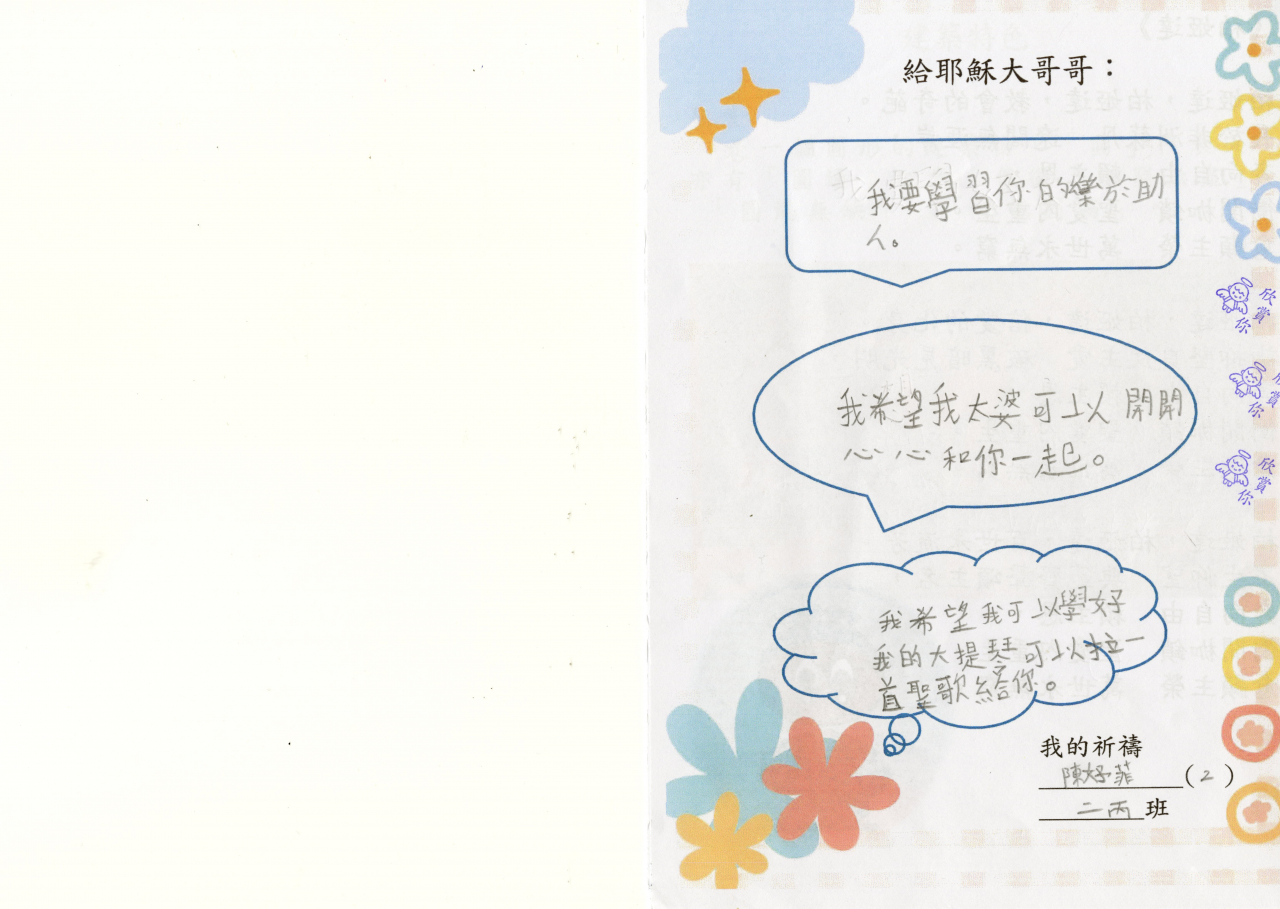 給耶穌大哥哥：
我要學習你的樂於助
人。
我希望我太婆可以開開
心心和你一起。
我希望我可以學好
我的大提琴可以拉一
首聖歌給你。
我的祈禱
陳妤菲(2)
二丙班
欣賞你
欣賞你
欣賞你